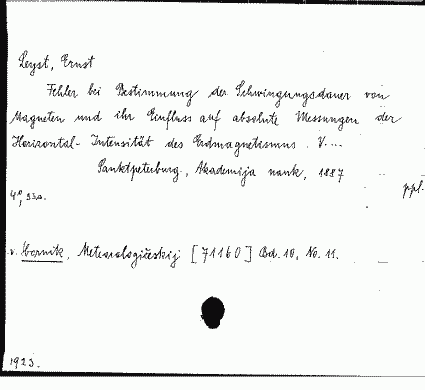 Leyst, Ernst
Fehler bei Bestimmung der Schwingungsdauer von
Magneten und ihr Einfluss auf absolute Messungen der
Horizontal-Intensität des Erdmagnetismus. V....
Sanktpeterburg, Akademija nauk, 1887
ppl.
4°,
v. Sbornik, Meteorologičeskij [71160] Bd. 10, No. 11.
1923.